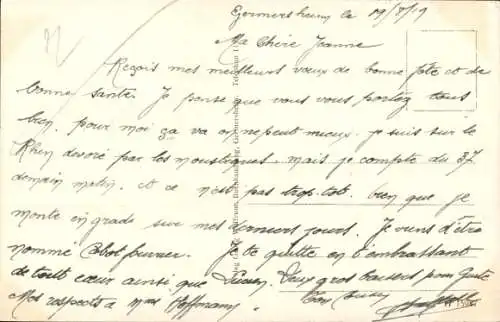 Germersheim le 19/8/19
Ma Chère Jeanne
Reçois mes meilleurs vœux de bonne fête et de
bonne santé. Je pense que vous vous portez tous
bien, pour moi ça va on ne peut mieux. je suis sur le
Rhin dévoré par les moustiques, mais je compte du 37
demain matin, et ce n'est pas trop tôt. bien que je
monte en grade sur mes derniers jours. Je viens d'être
nommé Cabot fourrier. Je te quitte en t'embrassant
de tout cœur ainsi que Lucien. Deux gros baisers pour
Ton Cousin
Mes respects à Mme Hoffmann